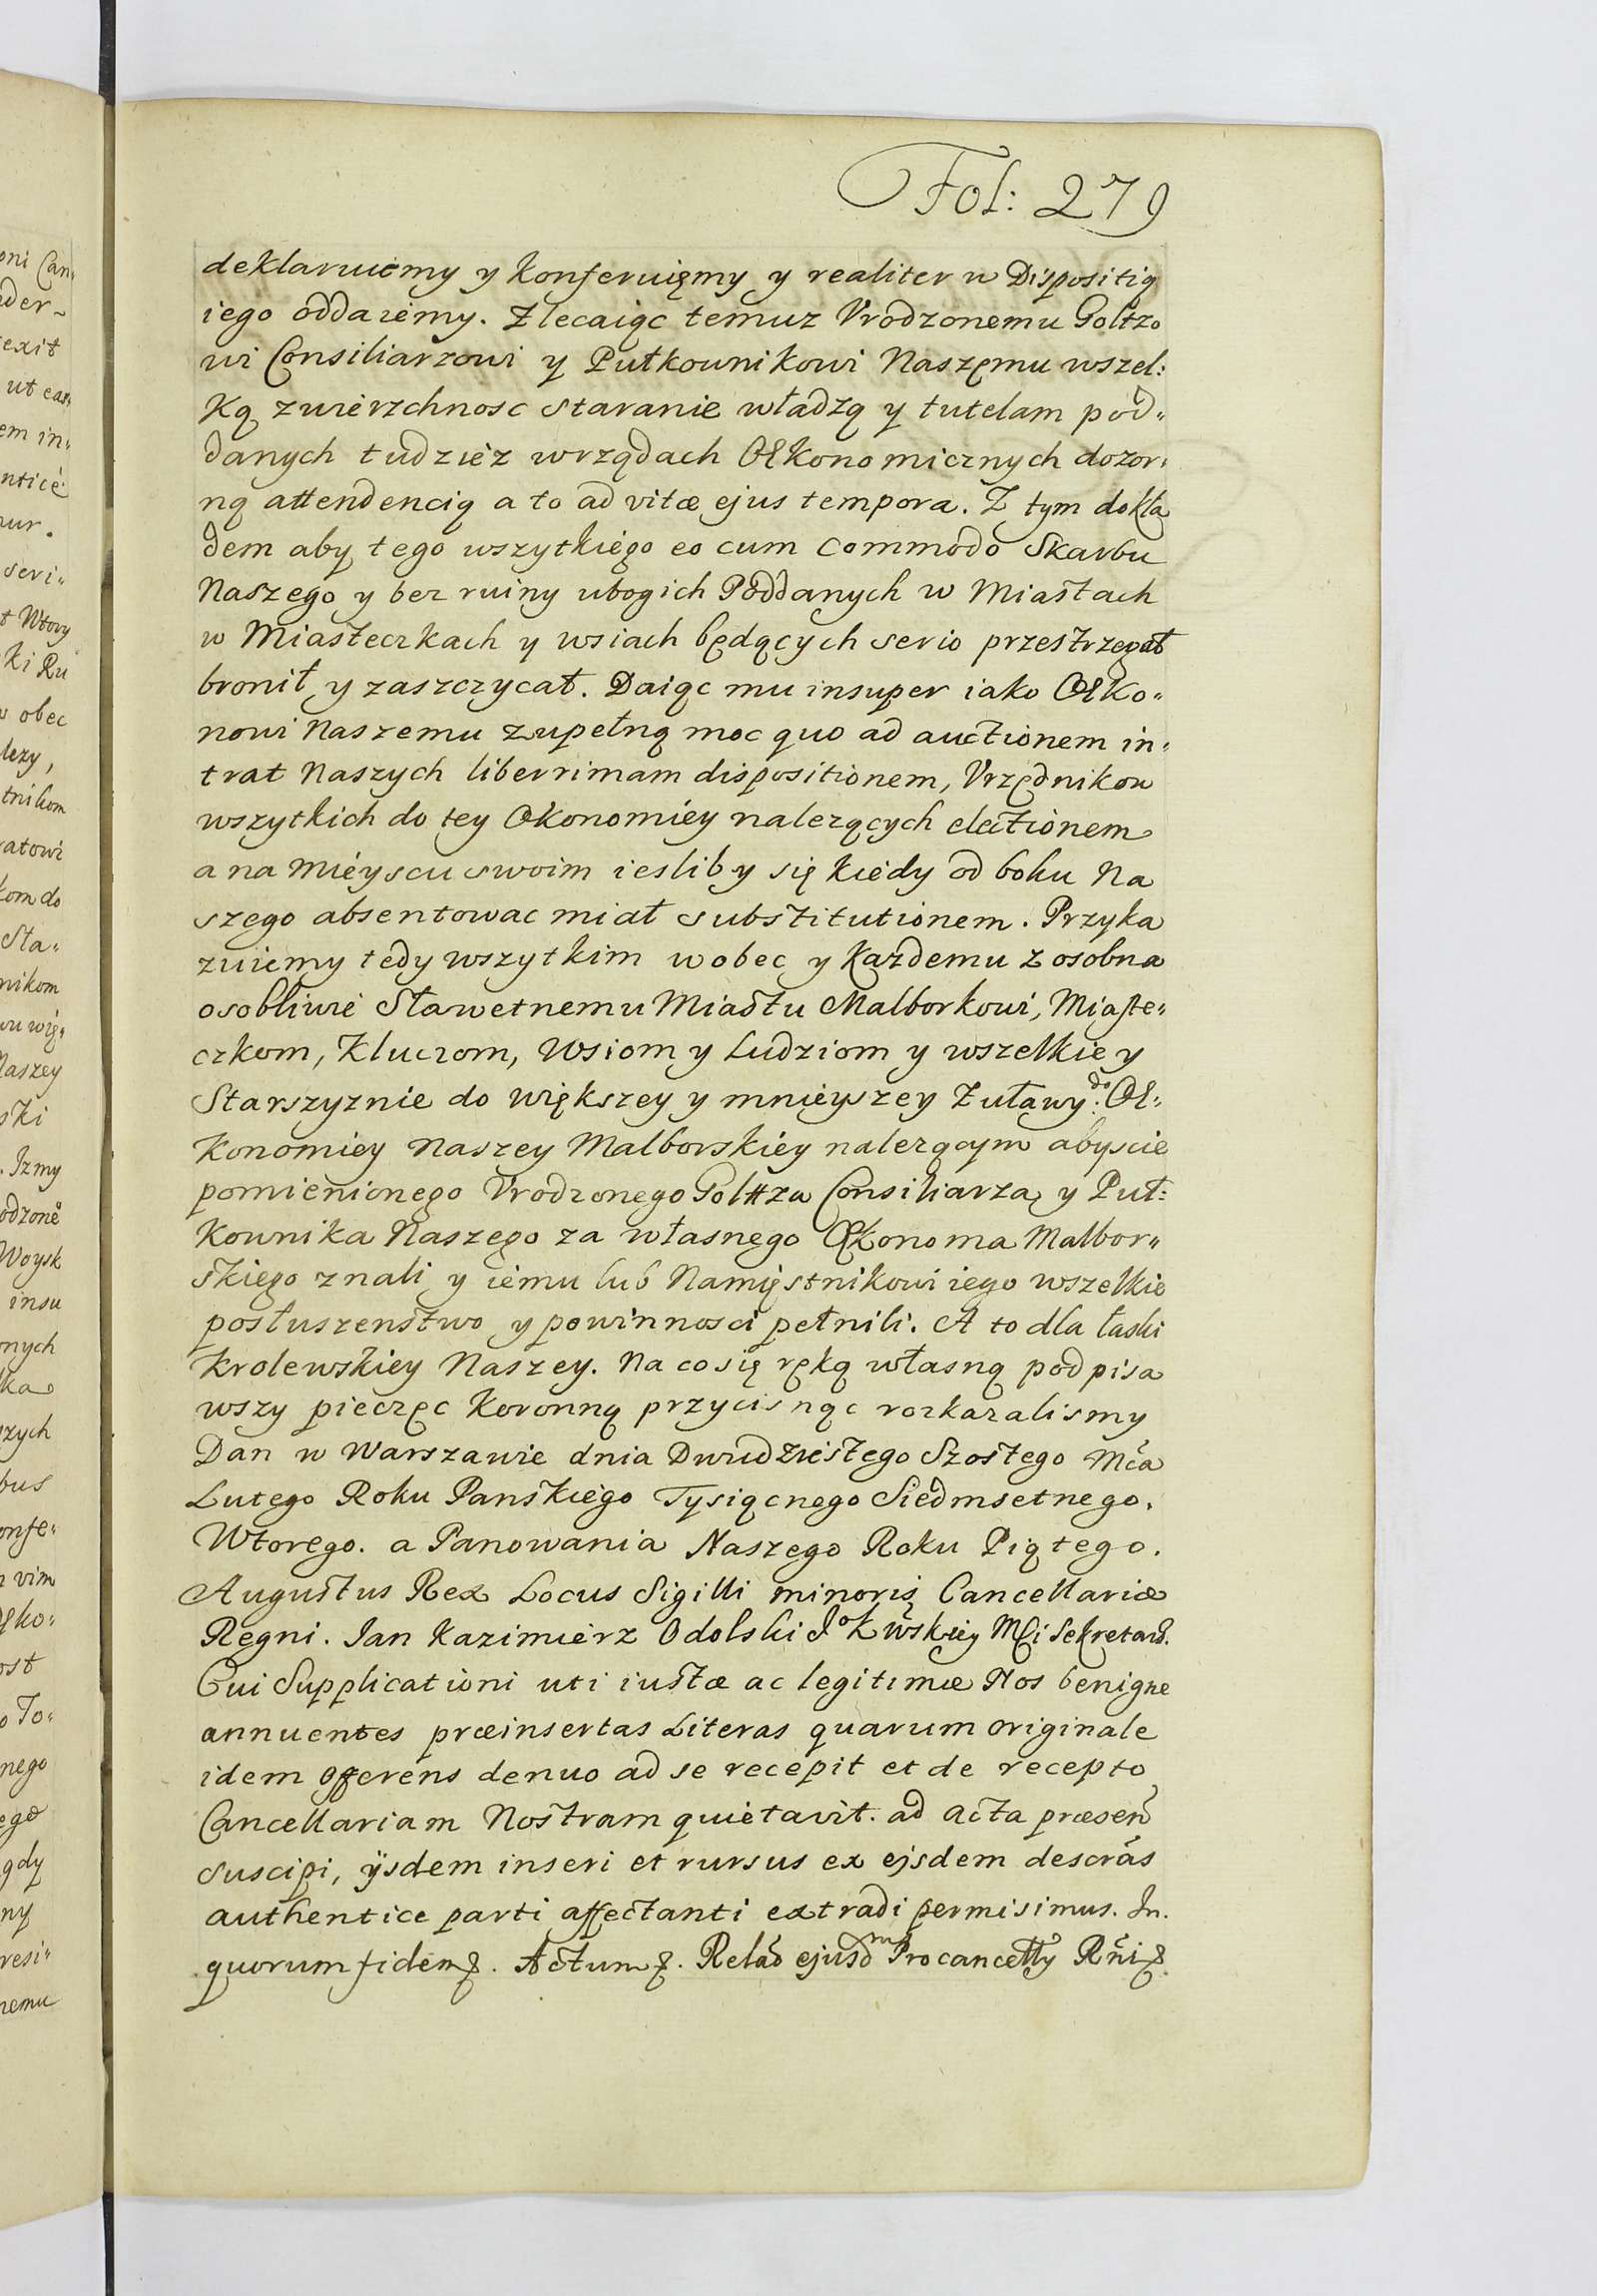 Fol: 279
deklaruiemy y konferuięmy y realiter w Dispositią
iego oddaiemy. Zlecaiąc temuz Vrodzonemu Goltzo
wi Consiliarzowi y Pułkownikowi Naszęmu wszel:
ką zwierzchnosc staranie władzą y tutelam pod„
danych tudziez wrządach Œkonomicznych dozor„
ną attendencią a to ad vitæ ejus tempora. Z tym dokła
dem aby tego wszytkiego eo cum Commodo Skarbu
Naszego y bez ruiny ubogich Poddanych w Miastach
w Miasteczkach y wsiach będących serio przestrzegał
bronił y zaszczycał. Daiąc mu insuper iako Œko„
nowi Naszemu zupełną moc quo ad auctionem in„
trat Naszych liberrimam dispositionem, Vrzędnikow
wszytkich do tey Œkonomiey nalezących electionem
a na mieyscu swoim iesliby się kiedy od boku Na
szego absentowac miał substitutionem. Przyka
zuiemy tedy wszytkim wobec y kazdemu z osobna
osobliwie Sławetnemu Miastu Malborkowi, Miaste„
czkom, Kluczom, Wsiom y Ludziom y wszelkiey
Starszyznie do większey y mnieyszey Zuławy do Œ„
konomiey Naszey Malborskiey nalezącym abyscie
pomienionego Vrodzonego Goltza Consiliarza y Puł:
kownika Naszego za własnego Œkonoma Malbor„
skiego znali y iemu lub Namięstnikowi iego wszelkie
posłuszenstwo y powinnosci pełnili. A to dla łaski
krolewskiey Naszey. Na co się ręką własną podpisa
wszy pieczęc Koronną przycisnąc rozkazalismy
Dan w Warszawie dnia Dwudziestego Szostego Mca
Lutego Roku Panskiego Tysiącnego Siedmsetnego.
Wtorego. a Panowania Naszego Roku Piątego.
Augustus Rex Locus Sigilli minoris Cancellariæ
Regni. Jan Kazimierz Odolski Jo Kwskiey Mci Sekretarz.
Cui Supplicationi uti iustæ ac legitimæ Nos benigne
annuentes præinsertas Literas quarum originale
idem offerens denuo ad se recepit et de recepto
Cancellariam Nostram quietavit. ad acta præsen
suscipi, ijsdem inseri et rursus ex ejsdem descras
authentice parti affectanti extradi permisimus. In.
quorum fidem &. Actum &. Relao ejusdm Procancelly Rni &.